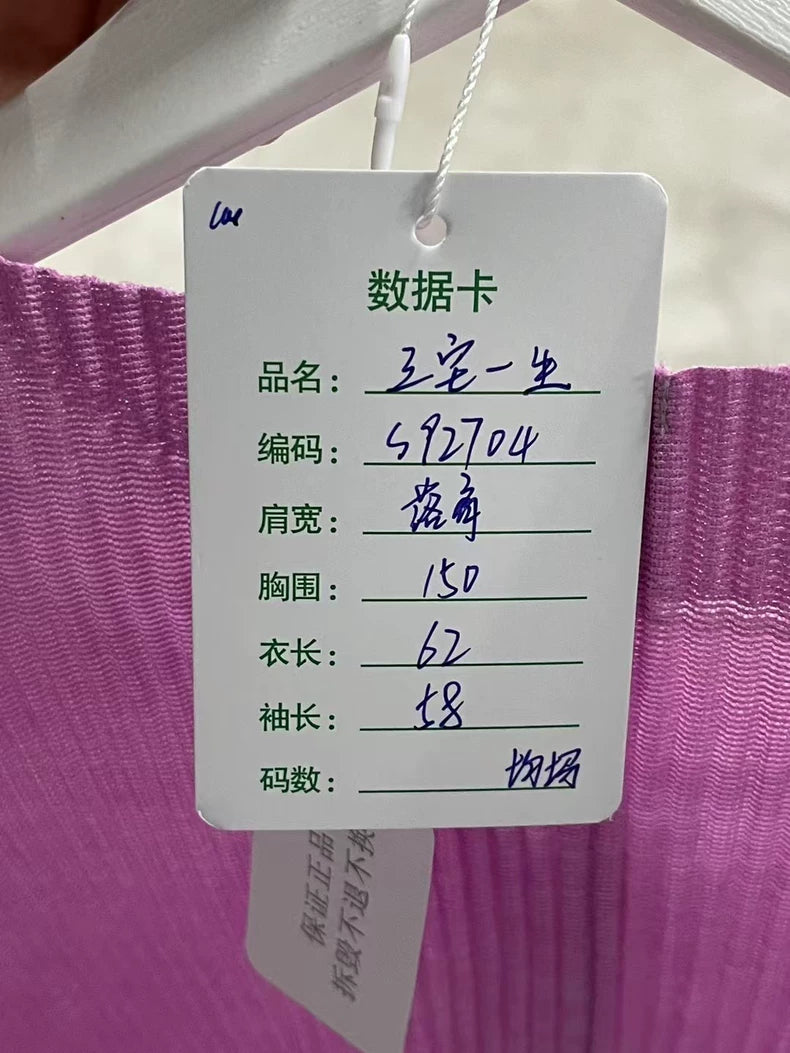 数据卡
品名：三宅一生
编码：S92704
肩宽：落肩
胸围：150
衣长：62
袖长：58
码数：均码
保证正品
拆毁不退不换